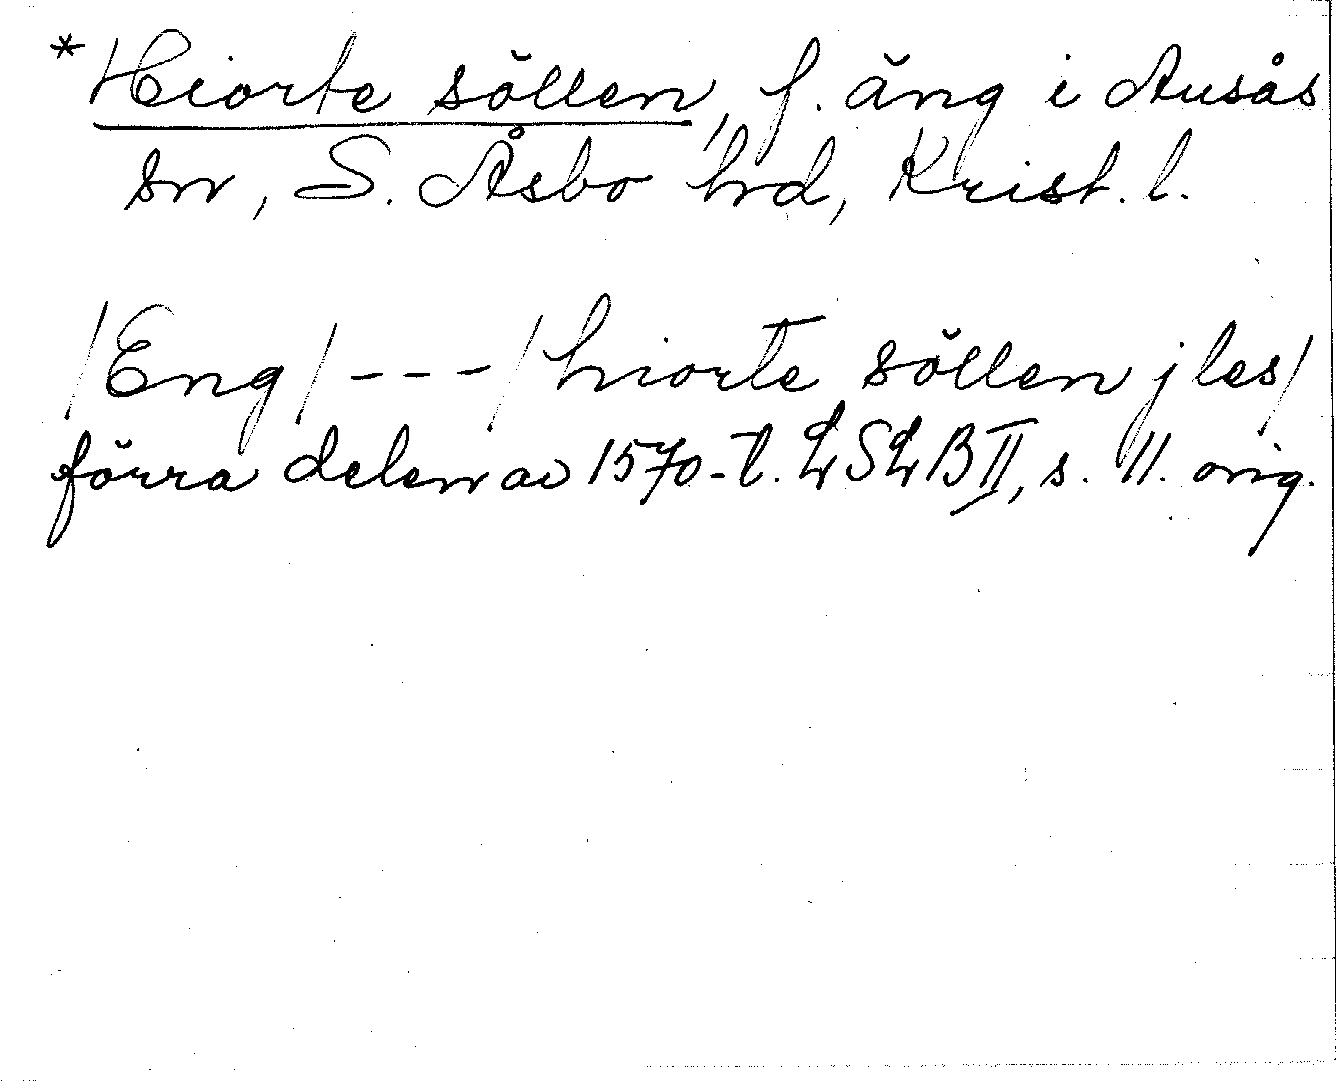 *Hiorte söllen, f. äng i Ausås
sn, S. Åsbo hd, Krist. l.
/Eng/ --- /hiorte söllen j les/
förra delen av 1570-t. LSLB II, s. 11. orig.